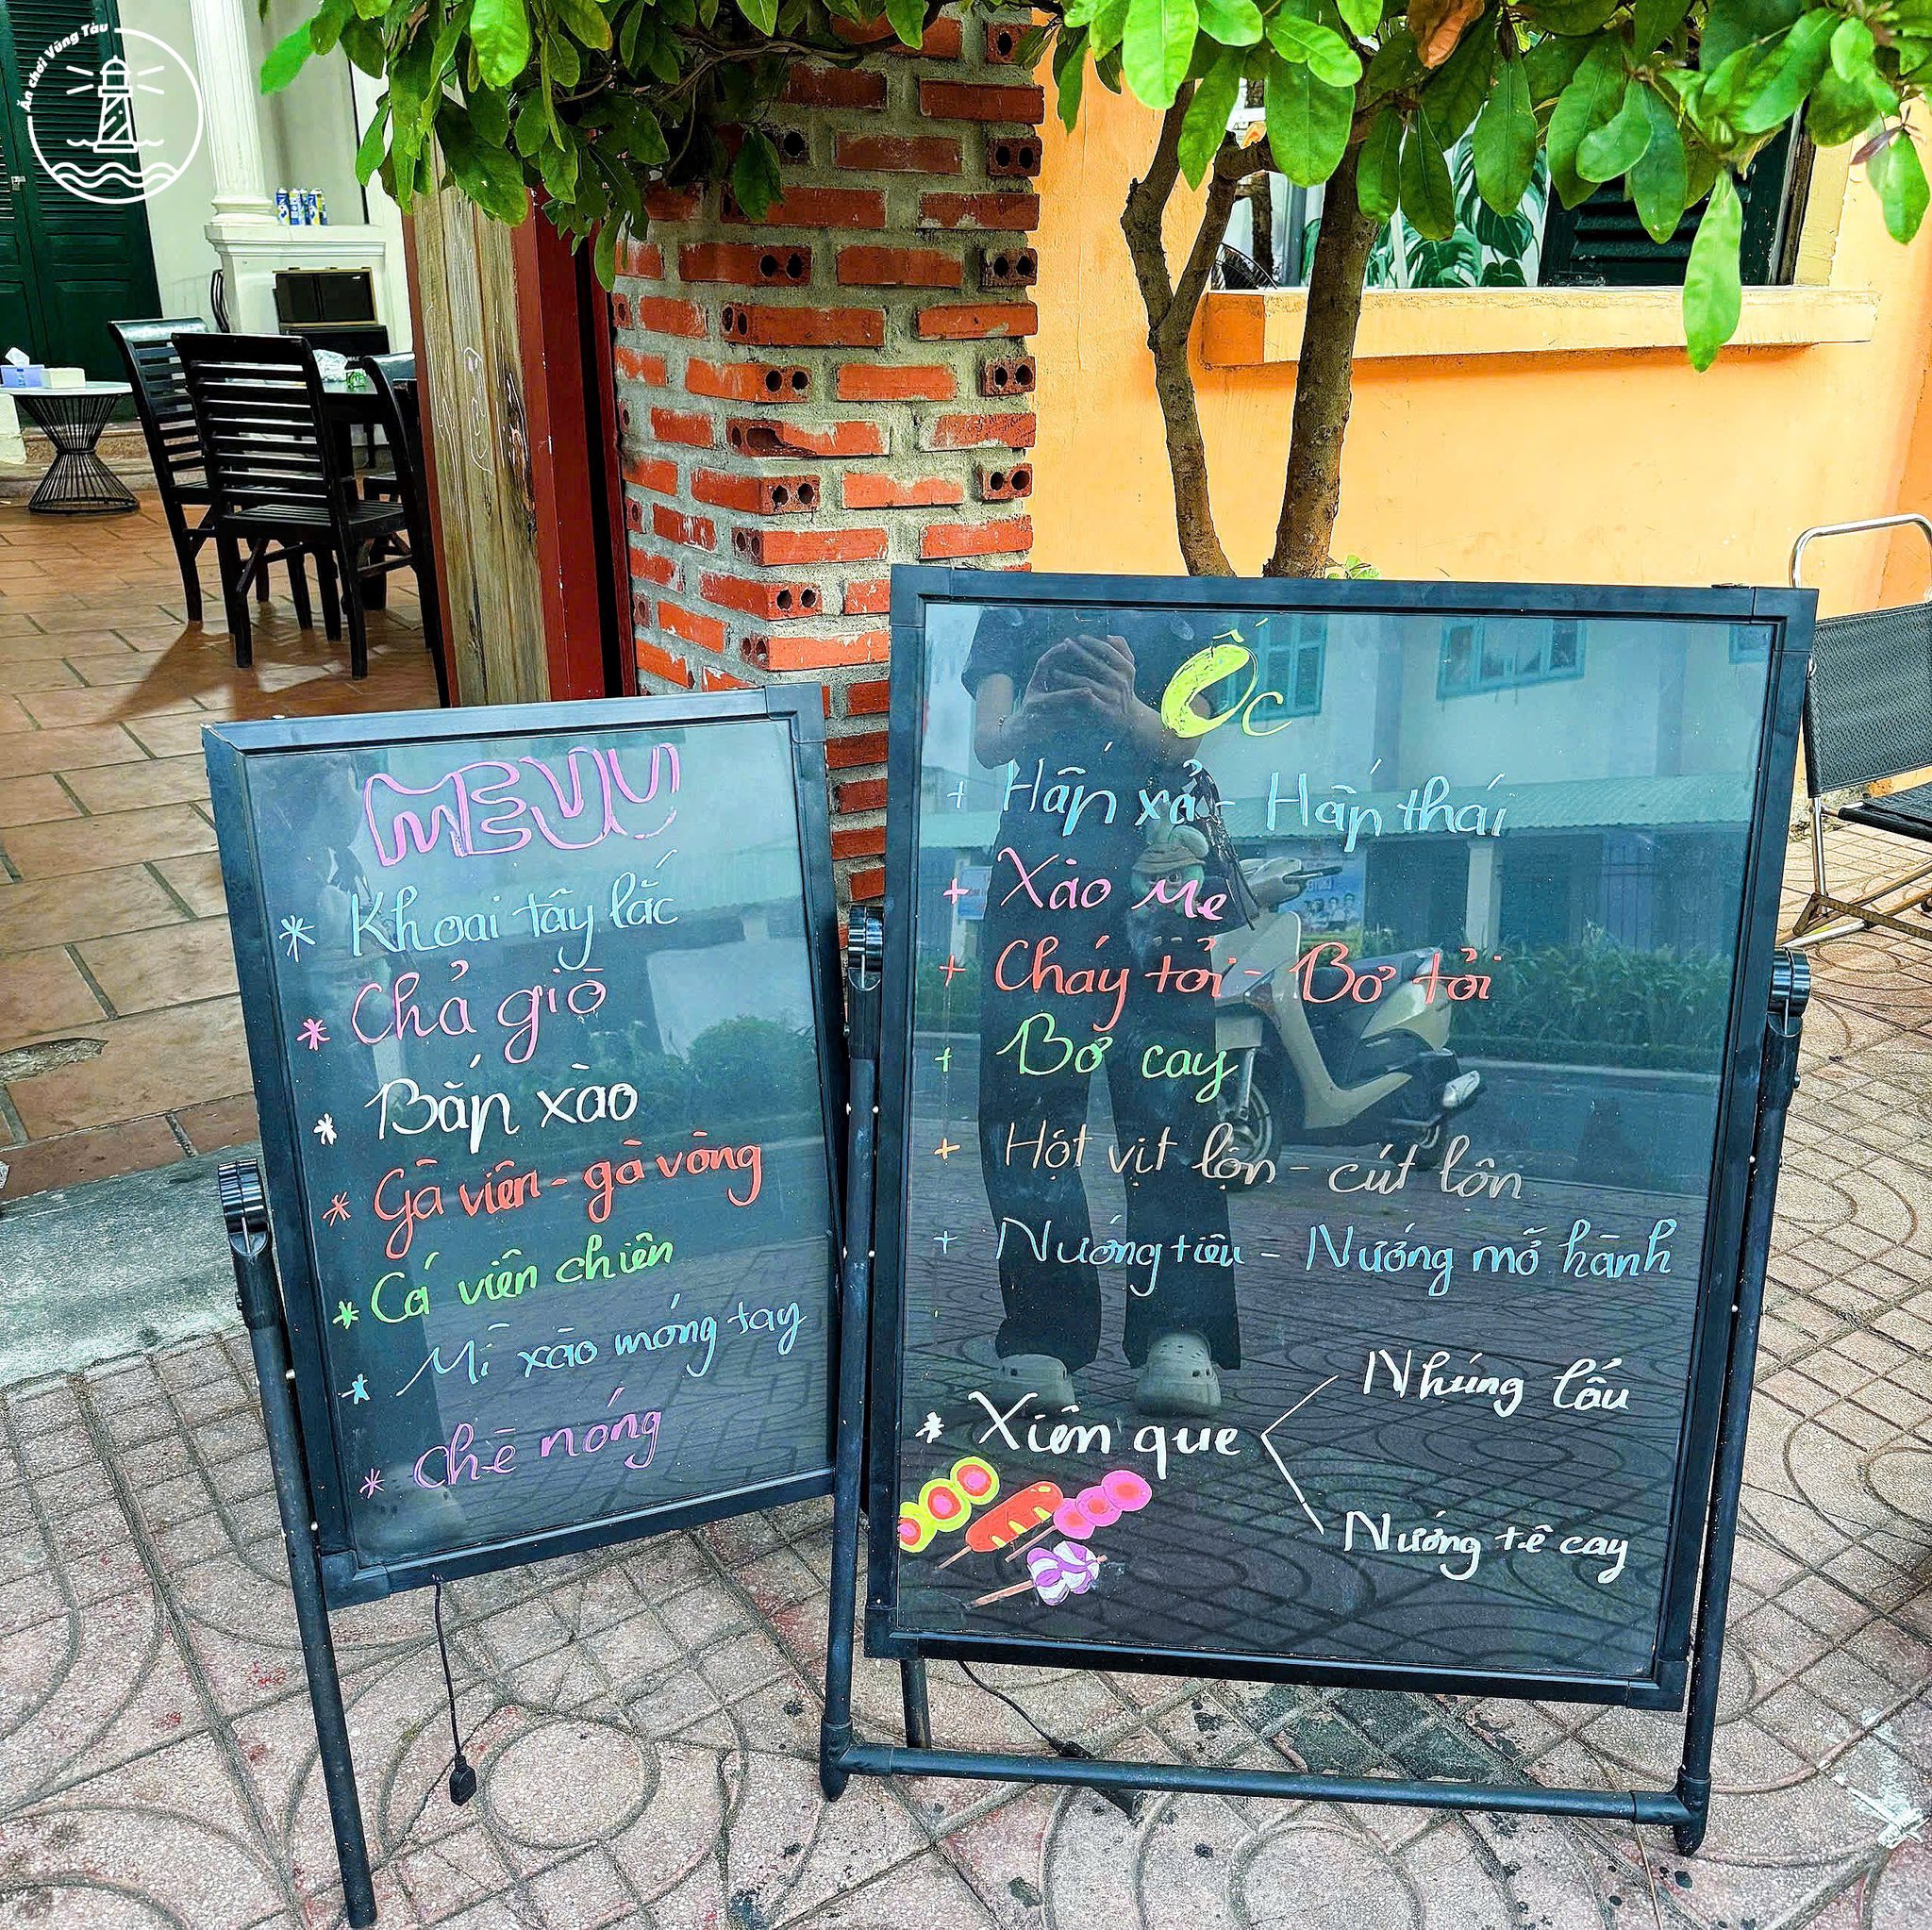 Ăn chơi Vũng Tàu
MENU
* Khoai tây lắc
* Chả giò
* Bắp xào
* Gà viên - gà vòng
* Cá viên chiên
* Mì xào móng tay
* Chè nóng
Ốc
+ Hấp xả - Hấp thái
+ Xào me
+ Cháy tỏi - Bơ tỏi
+ Bơ cay
+ Hột vịt lộn - cút lộn
+ Nướng tiêu - Nướng mỡ hành
* Xiên que
Nhúng lẩu
Nướng tê cay